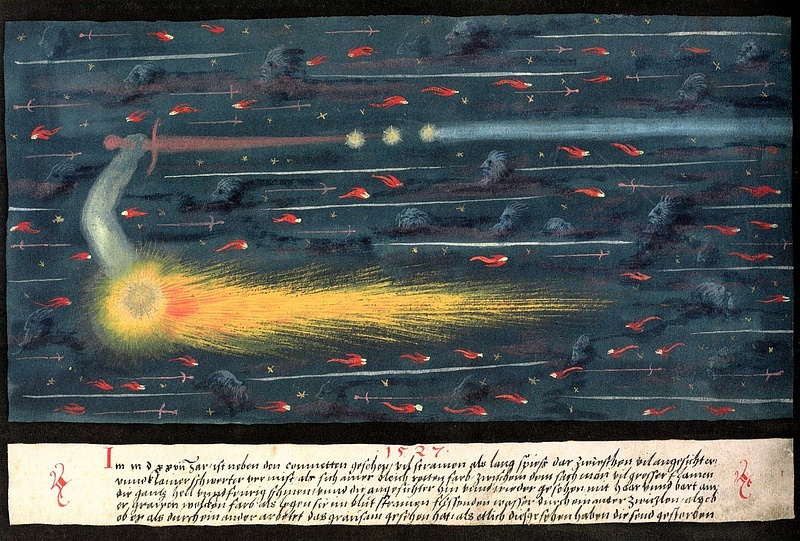 1527.
Im m d xxvii Jar ist neben den comettten gesehen vil straimen als lang spiess dar zwieschen vil angesichter
vnnd klainer schwerter der mist als sich ainer bleich rotten farb zwieschem dem sach man vil grosser flamen
die gantz hell vnnd feurig schinen vnnd die angesichter hin vnnd wieder gesehen mit har vnnd bart an
er grawen wolcken farb als legen sie im blut straimen fliessenden wasser durch ein ander zwitzlen als ob
ob er als durch ein ander arbetet das grausam gesehen hat als etlich gesehen haben die send gestorben